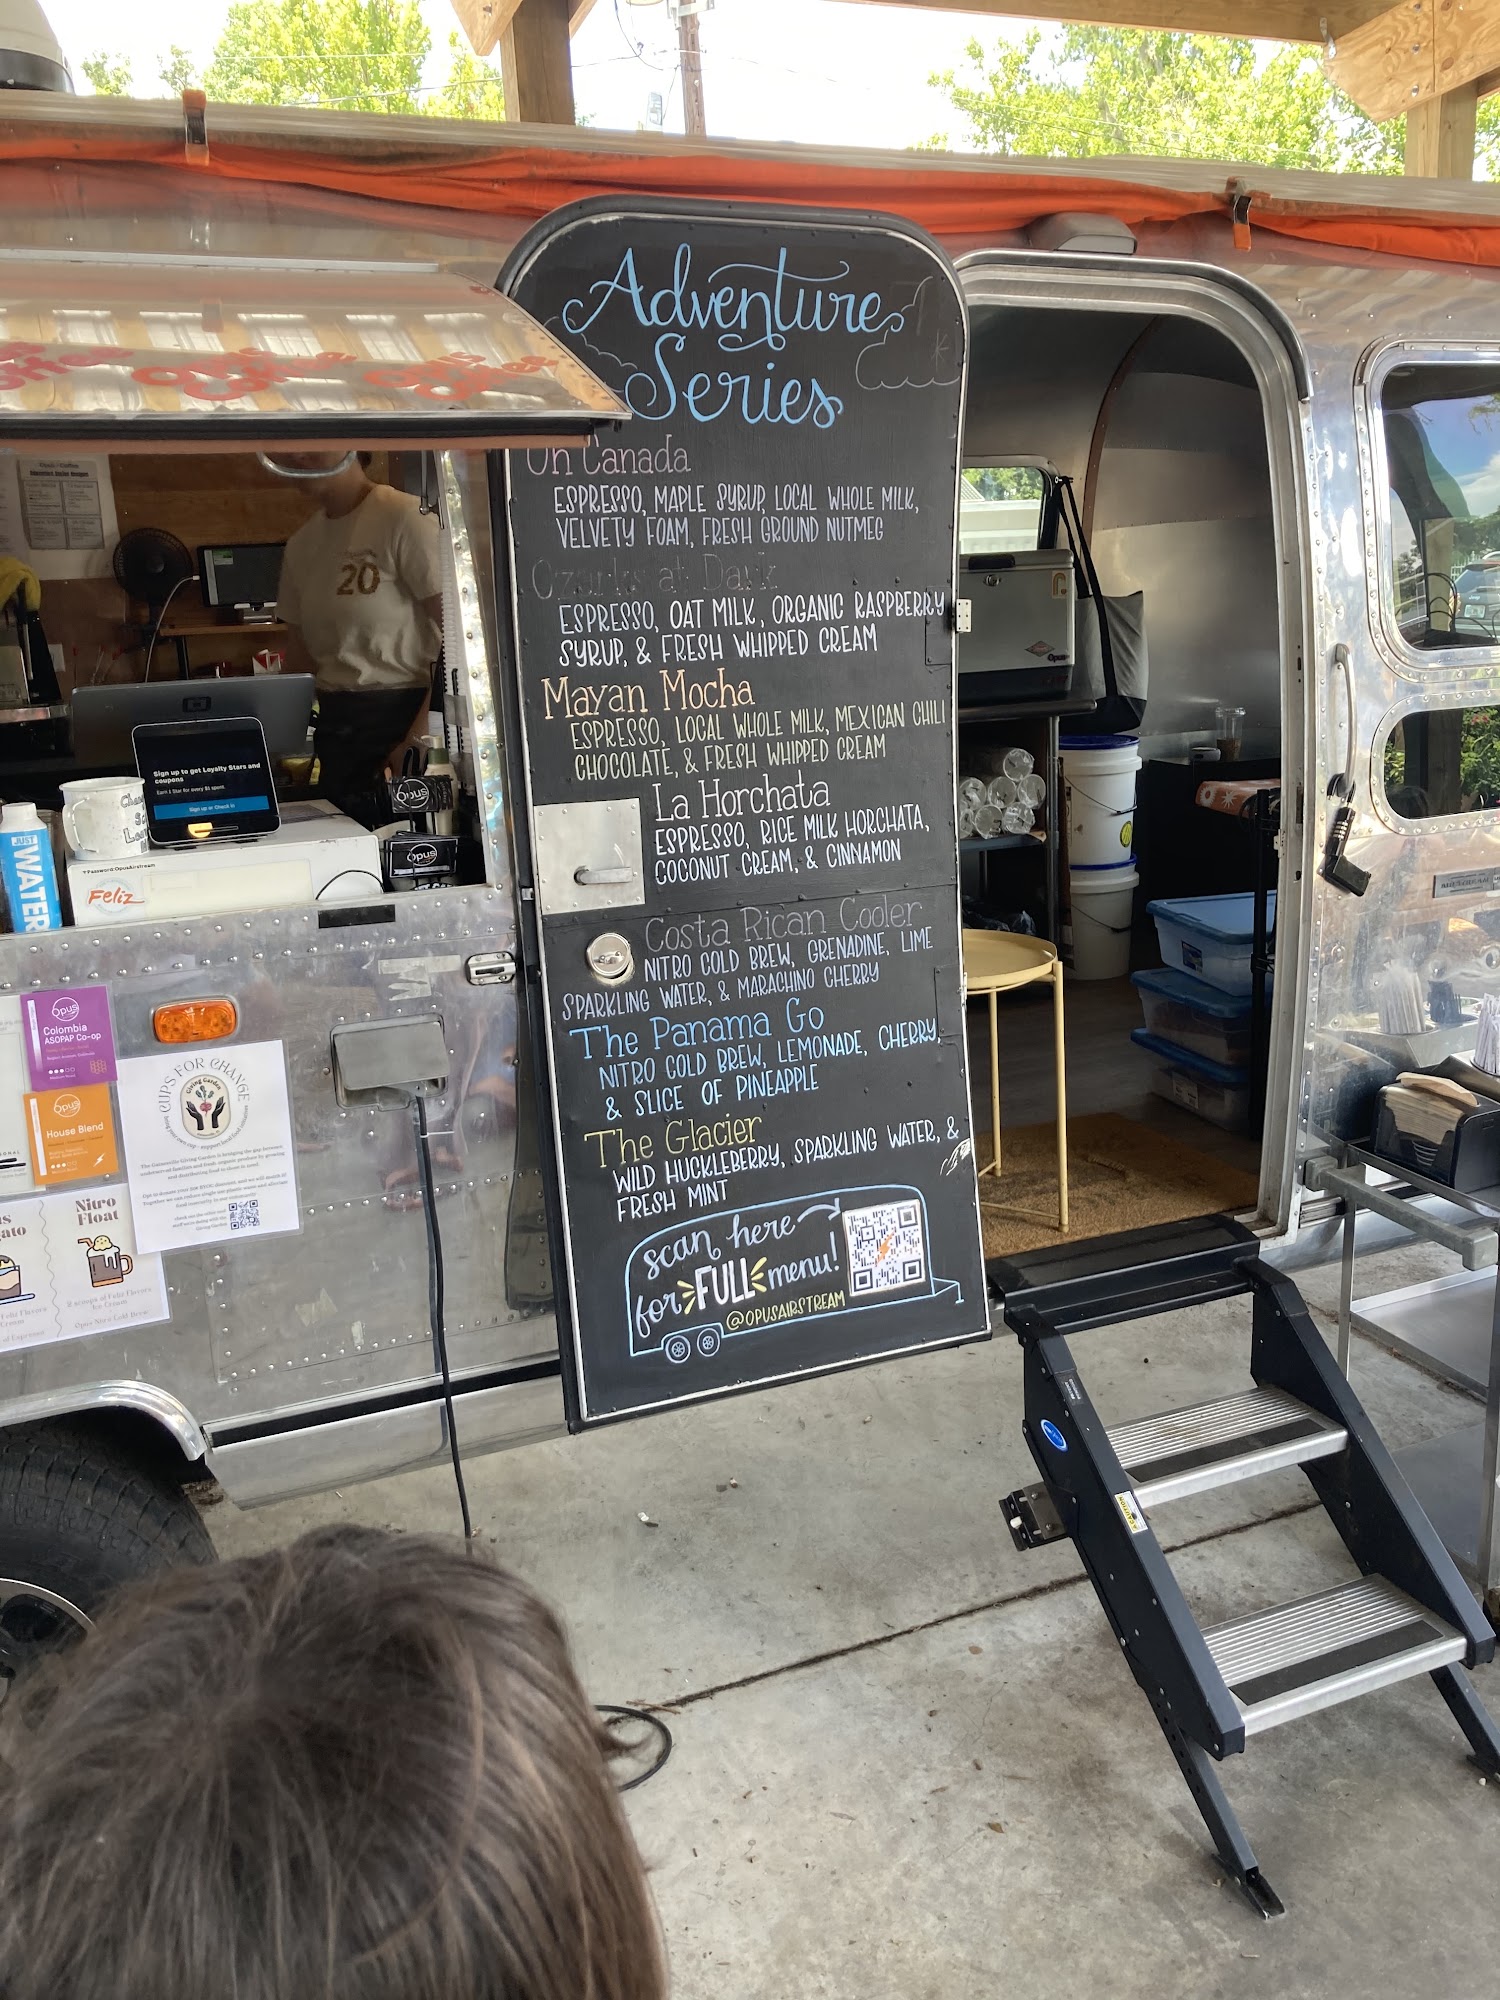 Adventure
Series
Oh Canada
ESPRESSO, MAPLE SYRUP, LOCAL WHOLE MILK,
VELVETY FOAM, FRESH GROUND NUTMEG
Ozarks at Dark
ESPRESSO, OAT MILK, ORGANIC RASPBERRY
SYRUP, & FRESH WHIPPED CREAM
Mayan Mocha
ESPRESSO, LOCAL WHOLE MILK, MEXICAN CHILI
CHOCOLATE, & FRESH WHIPPED CREAM
La Horchata
ESPRESSO, RICE MILK HORCHATA,
COCONUT CREAM, & CINNAMON
Costa Rican Cooler
NITRO COLD BREW, GRENADINE, LIME
SPARKLING WATER, & MARACHINO CHERRY
The Panama Go
NITRO COLD BREW, LEMONADE, CHERRY,
& SLICE OF PINEAPPLE
The Glacier
WILD HUCKLEBERRY, SPARKLING WATER, &
FRESH MINT
scan here
for FULL menu!
@OPUSAIRSTREAM
20
Sign up to get Loyalty Stars and
coupons
Earn 1 Star for every $1 spent.
Sign up or Check in
JUST
WATER
Password:OpusAirstream
Feliz
Opus
Opus
Opus
Colombia
ASOPAP Co-op
Opus
House Blend
CUPS FOR CHANGE
Giving Garden
Nitro
Float
2 scoops of Feliz Flavors
Ice Cream
Opus Nitro Cold Brew
CAUTION